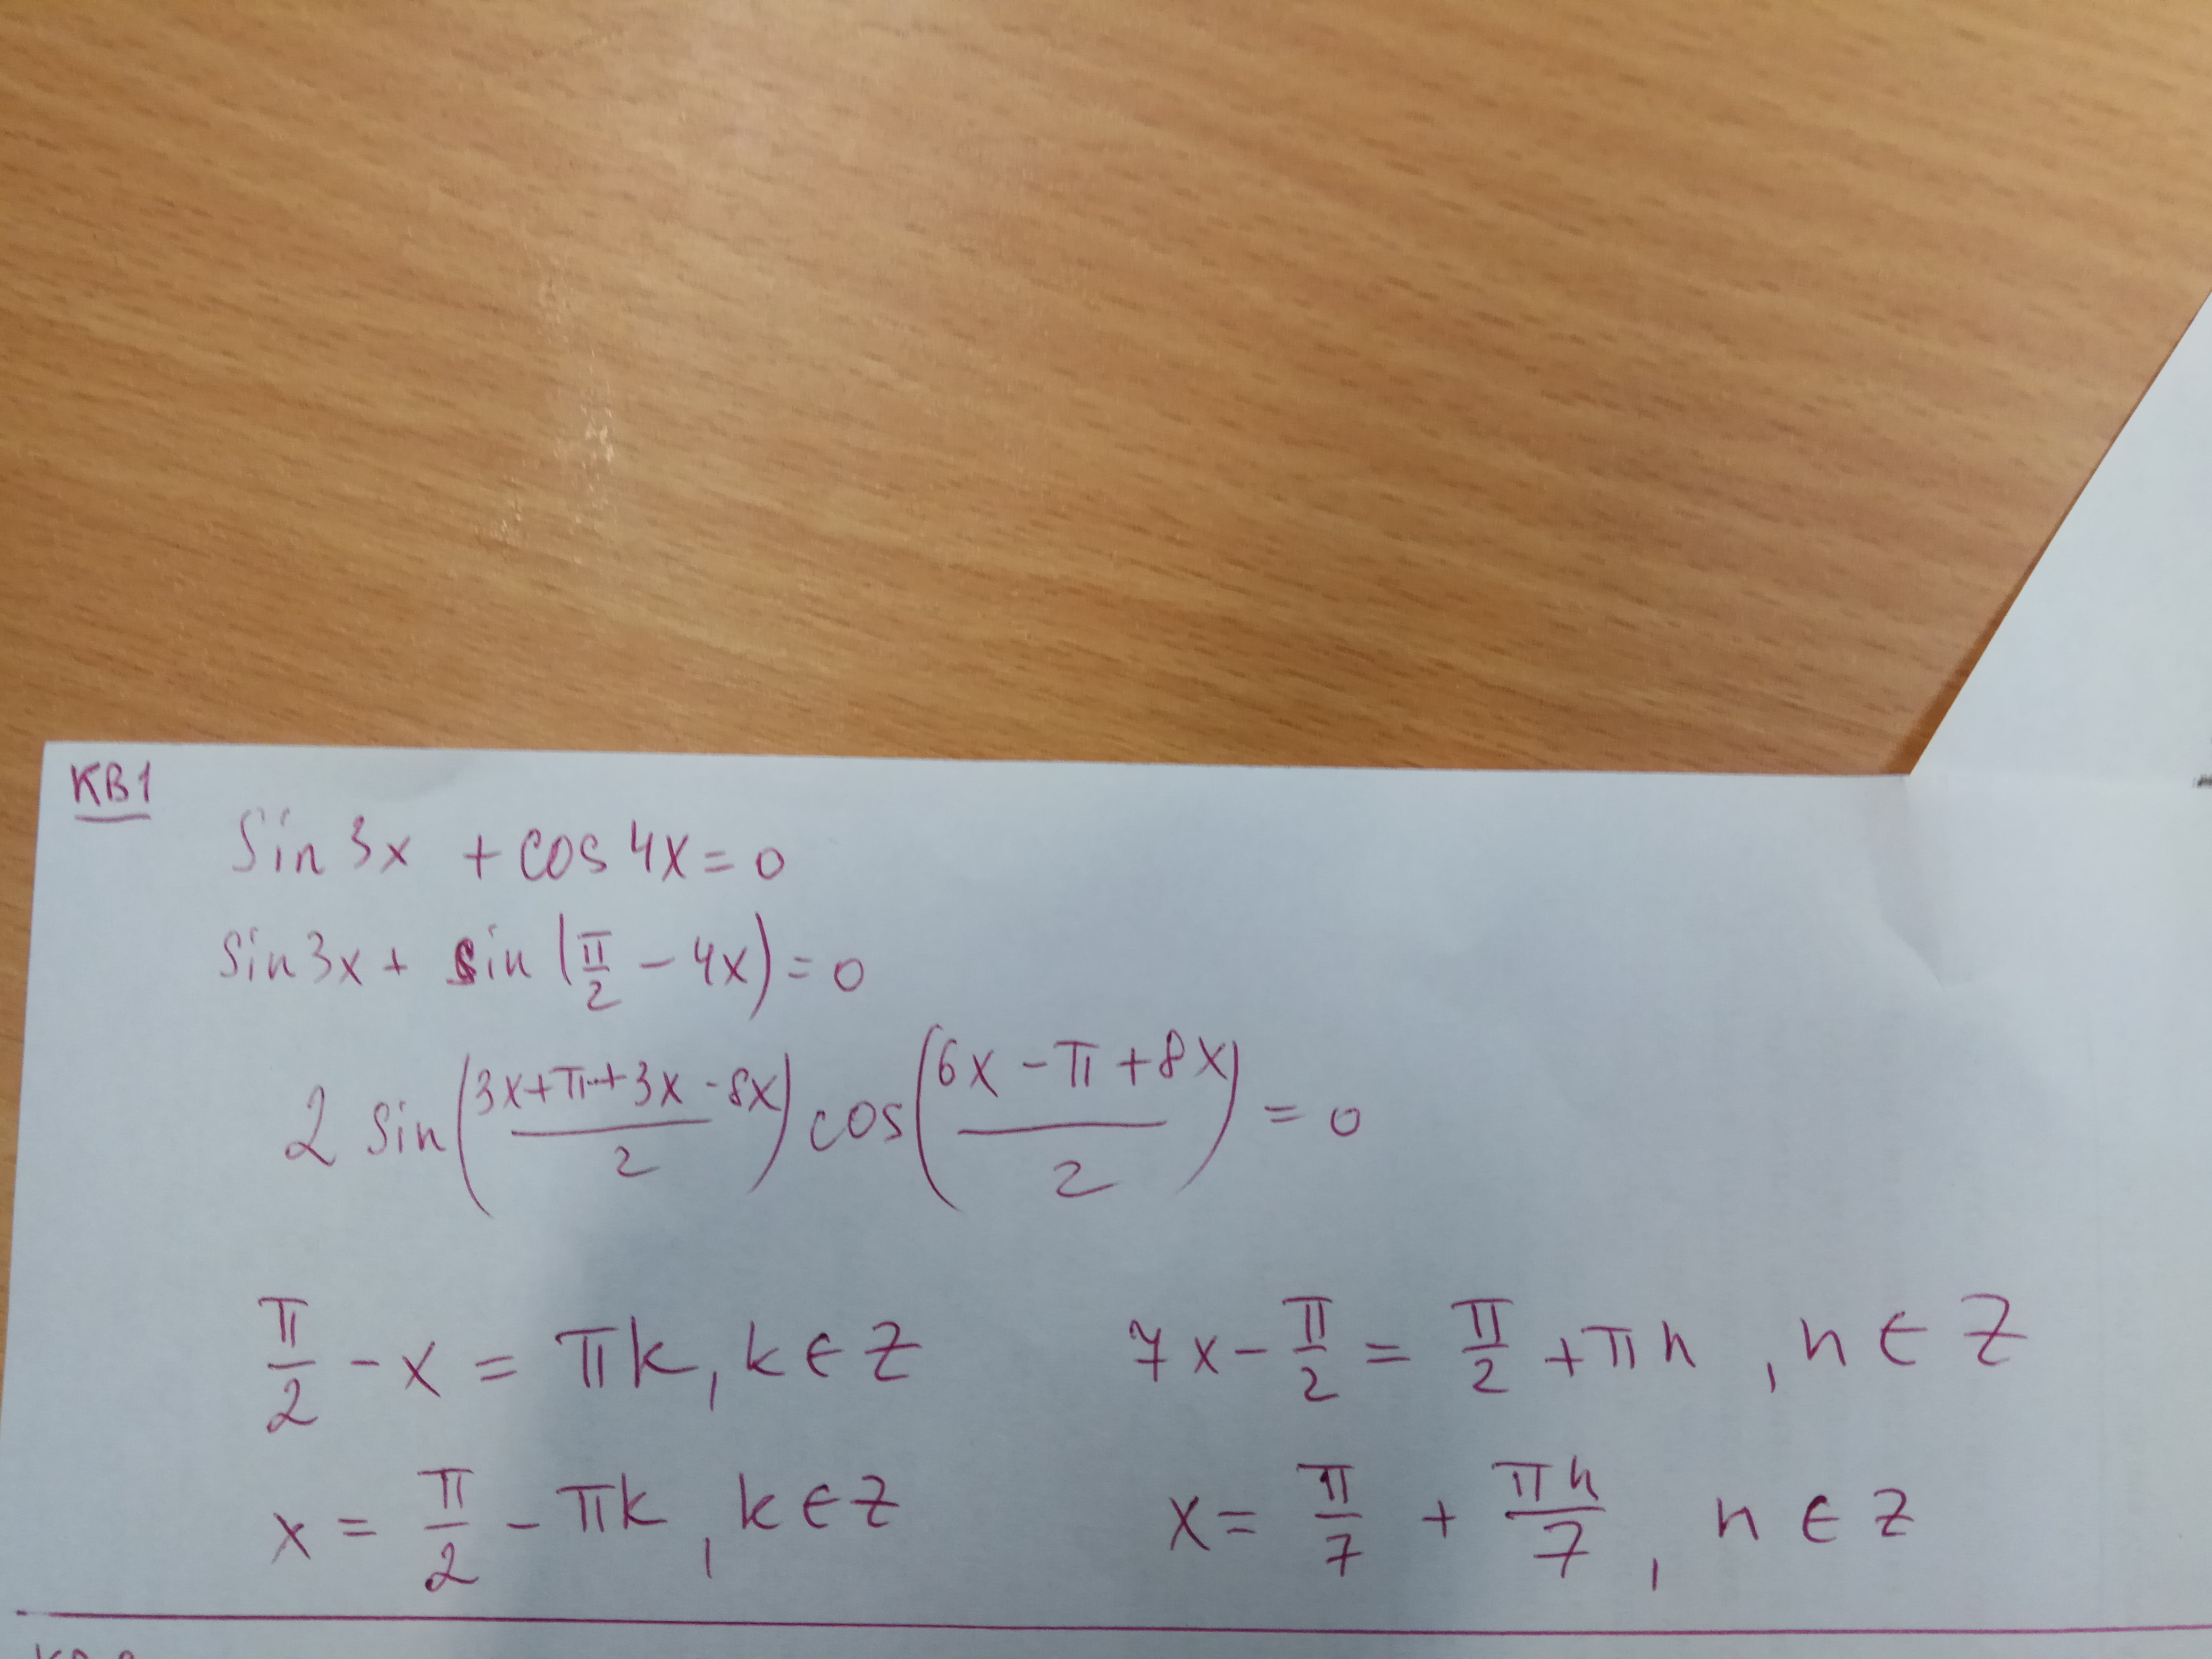 KB1
Sin 3x + cos 4x = 0
Sin 3x + sin (π/2 - 4x) = 0
2 sin ((3x+π+3x-8x)/2) cos ((6x-π+8x)/2) = 0
π/2 - x = πk, k ∈ Z 7x - π/2 = π/2 + πn, n ∈ Z
x = π/2 - πk, k ∈ Z x = π/7 + πn/7, n ∈ Z